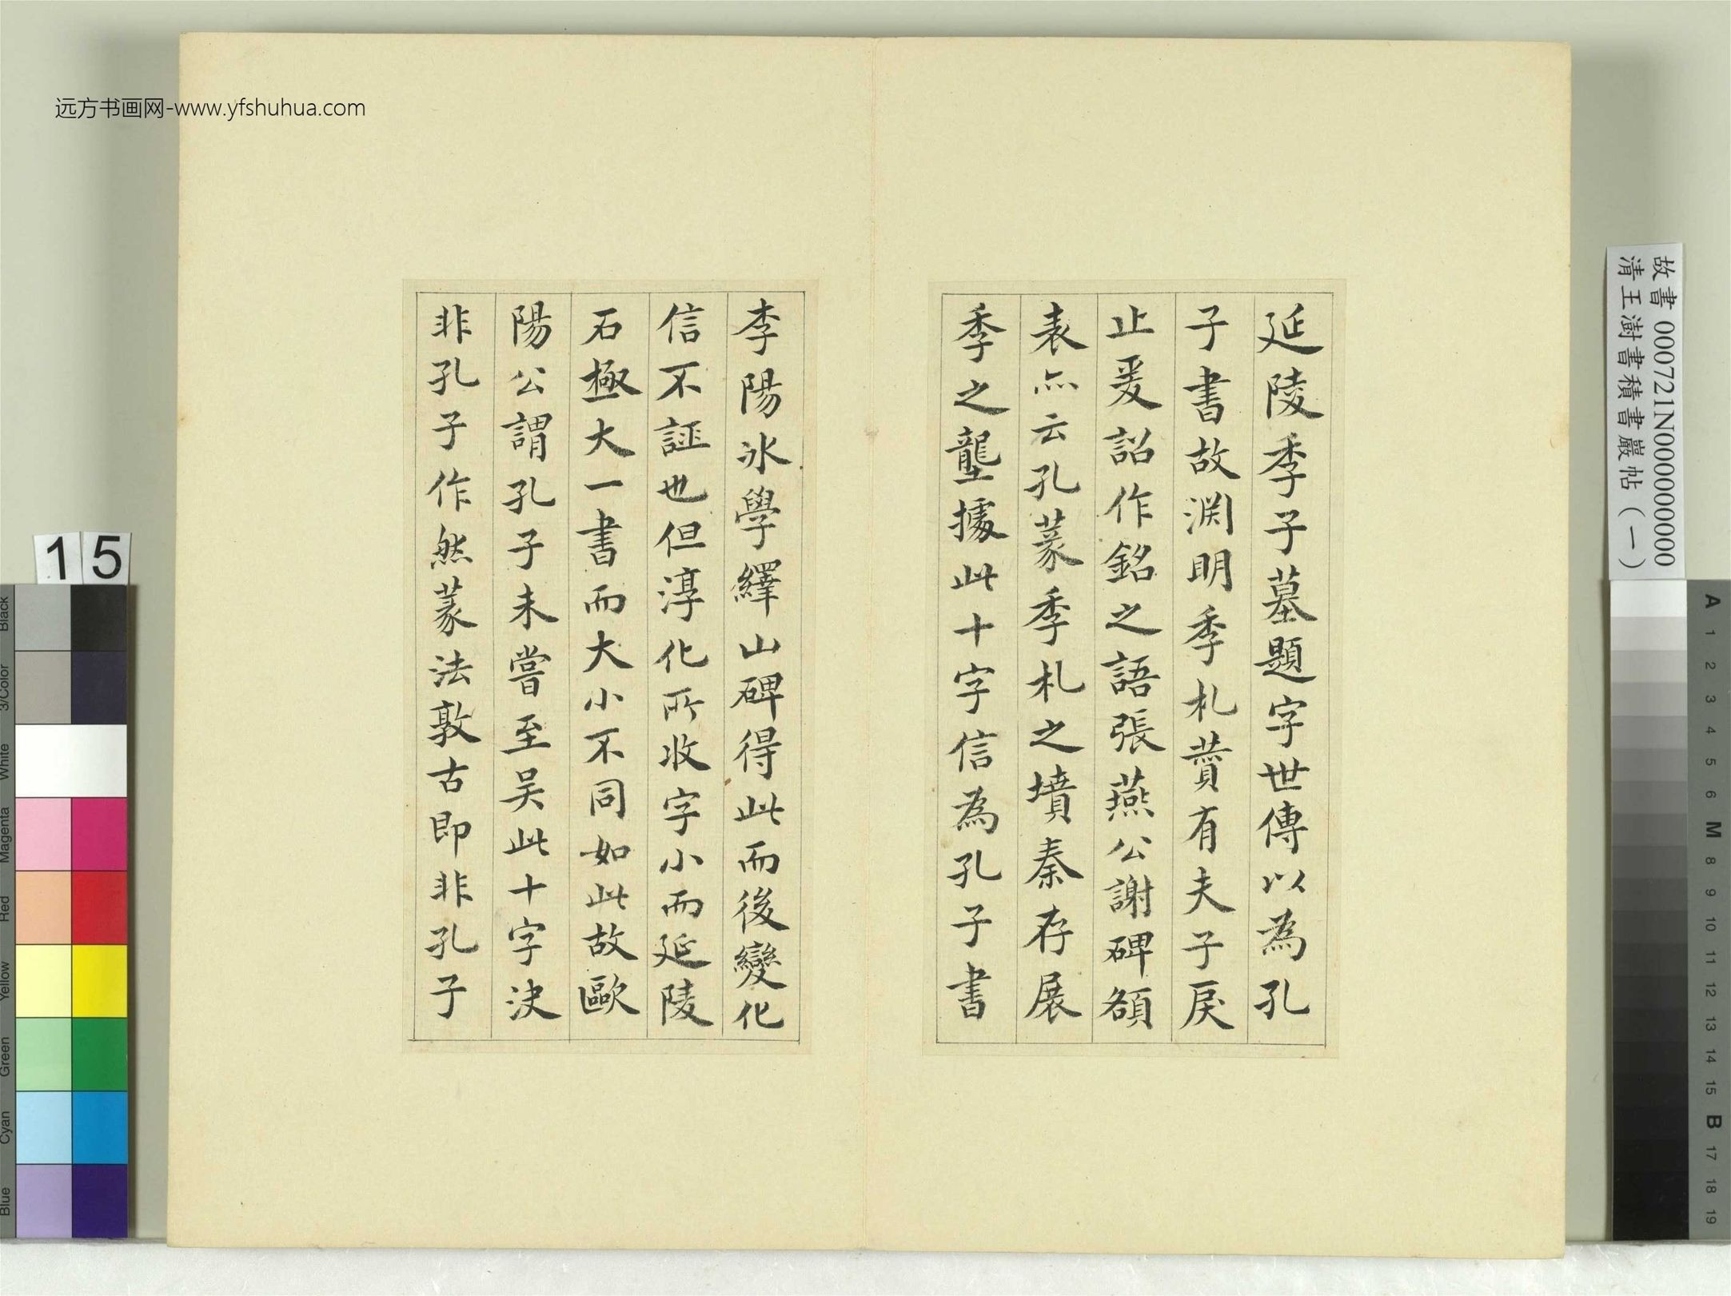 延陵季子墓題字世傳以為孔
子書故淵明季札贊有夫子戾
止爰詔作銘之語張燕公謝碑額
表亦云孔篆季札之墳秦存展
季之壟據此十字信為孔子書
李陽冰學繹山碑得此而後變化
信不誣也但淳化所收字小而延陵
石極大一書而大小不同如此故歐
陽公謂孔子未嘗至吴此十字決
非孔子作然篆法敦古即非孔子
远方书画网-www.yfshuhua.com
故書 000721N000000000
清王澍書積書巖帖（一）
15
Black
3/Color
White
Magenta
Red
Yellow
Green
Cyan
Blue
A
1
2
3
4
5
6
M
8
9
10
11
12
13
14
15
B
17
18
19